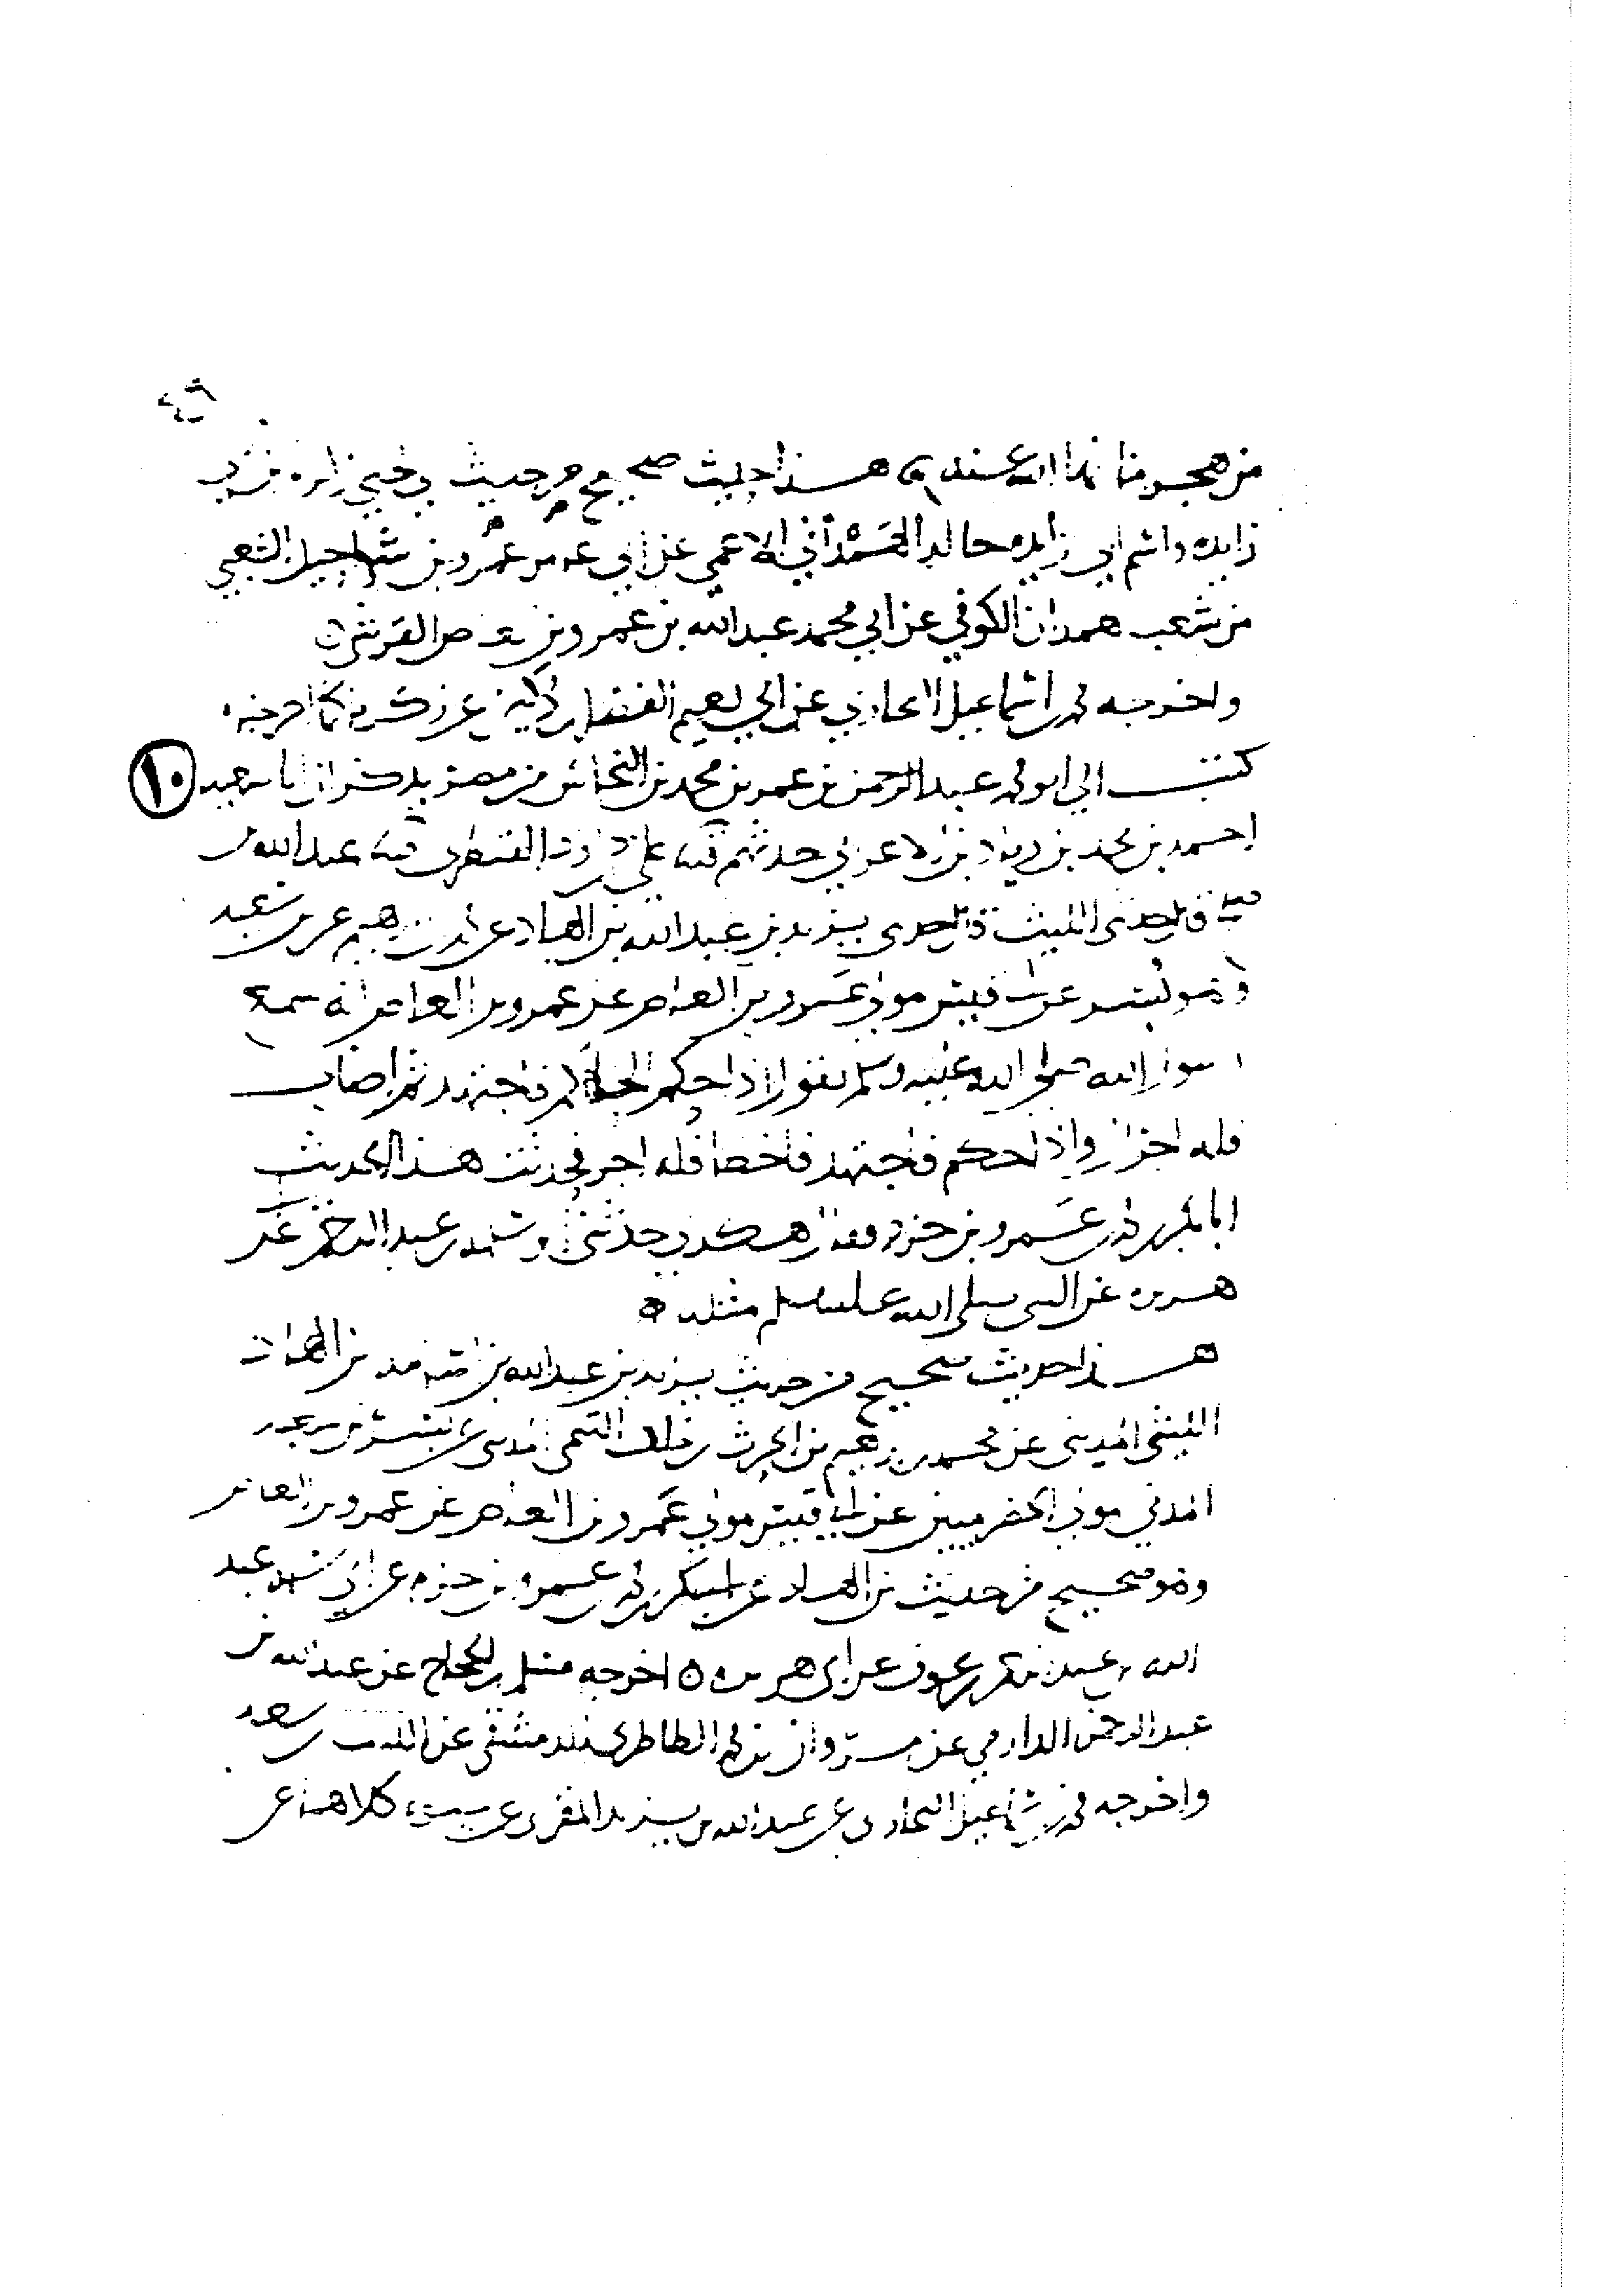 من هجر ما نها الله عنه هذا حديث صحيح من حديث ابي يحيى زكريا بن ابي
زايده واسم ابي زايده خالد الهمداني الاعمى عن ابي عامر عمرو بن شراحيل الشعبي
من شعب همدان الكوفي عن ابي محمد عبد الله بن عمرو بن العاص القرشي
واخرجه محمد بن اسماعيل البخاري عن ابي نعيم الفضل بن دكين عن زكريا كما اخرجناه
كتب الي ابو محمد عبد الرحمن بن عمر بن محمد بن النحاس من مصر يذكر ان ابا سعيد
١٠
احمد بن محمد بن زياد بن الاعرابي حدثهم علي بن داود القنطري عبد الله بن
قال حدثني الليث قال حدثني يزيد بن عبد الله بن الهاد عن محمد بن ابرهيم عن بسر بن سعيد
عن ابي قيس مولى عمرو بن العاص عن عمرو بن العاص انه سمع
رسول الله صلى الله عليه وسلم يقول اذا حكم الحاكم فاجتهد ثم اصاب
فله اجران واذا حكم فاجتهد فاخطا فله اجر فحدثت هذا الحديث
ابا بكر بن محمد بن عمرو بن حزم فقال هكذي حدثني ابو سلمه بن عبد الرحمن عن ابي
هريره عن النبي صلى الله عليه وسلم مثله ه
هذا حديث صحيح من حديث يزيد بن عبد الله بن اسامه بن الهاد
الليثي المديني عن محمد بن ابرهيم بن الحرث بن خالد التيمي المدني عن بسر بن سعيد
المدني مولى الحضرميين عن ابي قيس مولى عمرو بن العاص عن عمرو بن العاص
وهو صحيح من حديث بن الهاد عن ابي بكر بن محمد بن عمرو بن حزم عن ابي سلمه عبد
الله بن عبد الرحمن بن عوف عن ابي هريره ه اخرجه مسلم بن الحجاج عن عبد الله بن
عبد الرحمن الدارمي عن مروان بن محمد الطاطري الدمشقي عن الليث بن سعد
واخرجه محمد بن اسماعيل البخاري عن عبد الله بن يزيد المقري عن حيوه كلاهما عن